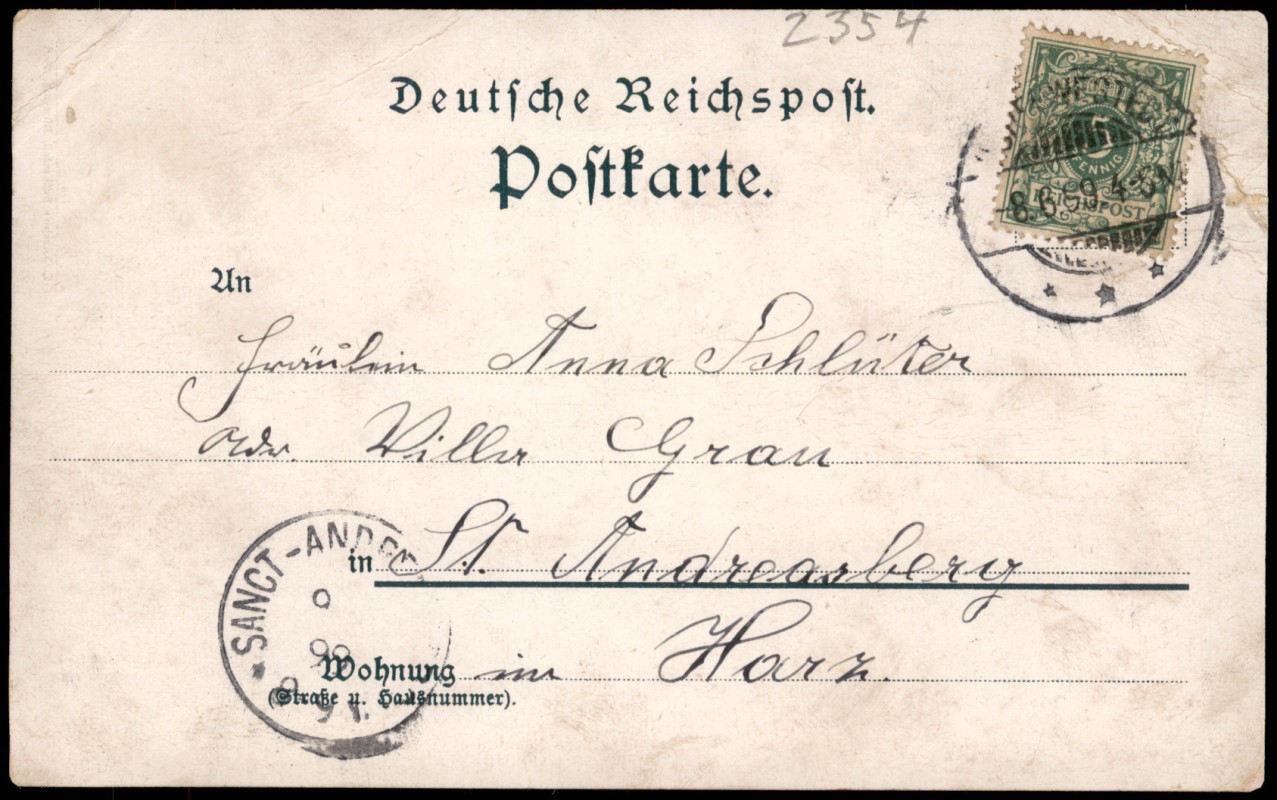 2354
Deutsche Reichspost.
Postkarte.
5
PFENNIG
REICHSPOST
8.6.99.4-5N.
An
Fräulein Anna Schlüter
Adr. Villa Grau
SANCT-ANDRE
in St. Andreasberg
9
Wohnung im Harz.
(Straße u. Hausnummer).